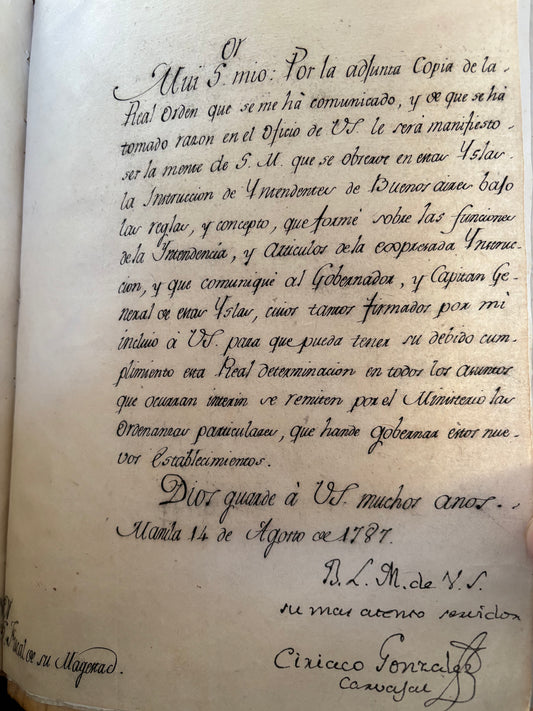 or
Mui S. mio: Por la adjunta Copia de la
Real Orden que se me há comunicado, y de que se há
tomado razon en el Oficio de VS. le será manifiesto
ser la mente de S. M. que se observe en estas Yslas
la Instruccion de Yntendentes de Buenos aires bajo
las reglas, y concepto, que formé sobre las funciones
de la Yntendencia, y Articulos de la expresada Ynstruc-
cion, y que comuniqué al Gobernador, y Capitan Ge-
neral de estas Yslas, cuios tantos firmados por mi
incluio à VS. para que pueda tener su debido cum-
plimiento esta Real determinacion en todos los asuntos
que ocurran interin se remiten por el Ministerio las
Ordenanzas particulares, que hande gobernar éstos nue-
vos Establecimientos.
Dios guarde à VS. muchos anos.
Manila 14 de Agosto de 1787.
B. L. M. de V. S.
su mas atento servidor
Ciriaco Gonzalez
Carvajal
Fiscal de su Magestad.